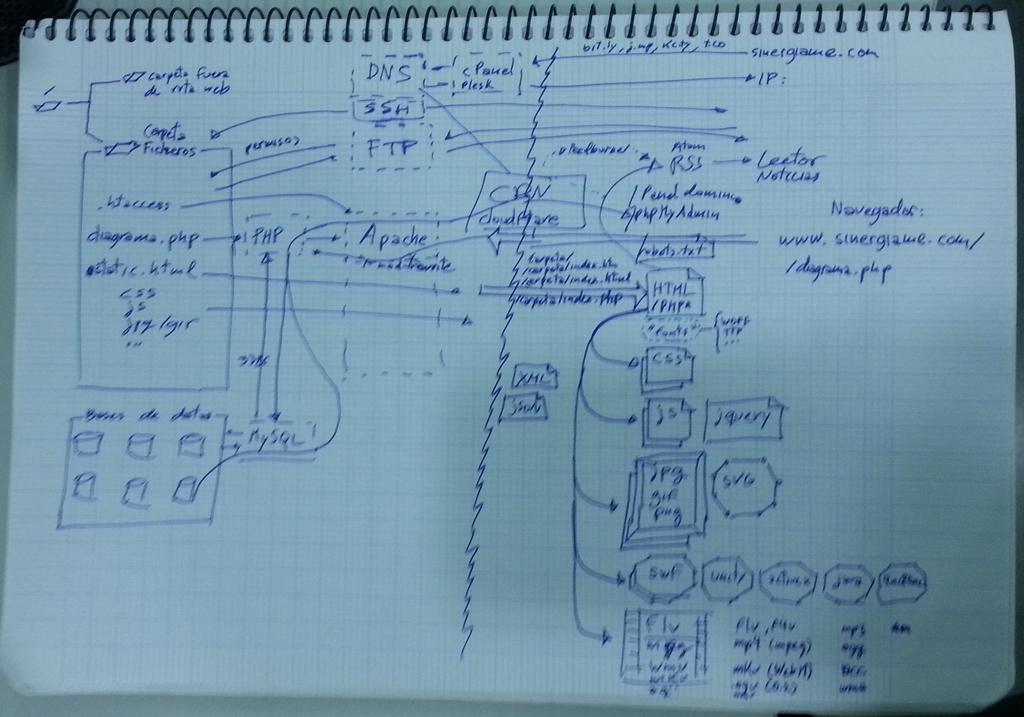 bit.ly, j.mp, kcty, t.co
sinergiame.com
DNS
cPanel
plesk
IP:
carpeta fuera
de ruta web
SSH
Carpeta
Ficheros
permisos
FTP
feedburner
Atom
RSS
Lector
Noticias
CDN
cloudflare
/Panel dominio
/phpMyAdmin
Navegador:
.htaccess
diagrama.php
PHP
Apache
mod_rewrite
robots.txt
www.sinergiame.com/
/diagrama.php
static.html
carpeta/
/carpeta/index.htm
/carpeta/index.html
/carpeta/index.php
HTML
/PHP
css
js
jpg/gif
...
"fonts"
WOFF
TTF
...
CSS
3306
XML
json
Bases de datos
MySQL
js
jquery
jpg
gif
png
SVG
swf
unity
java
flv
flv, f4v
mp3
mp4 (mpeg)
ogg
wmv
mkv (WebM)